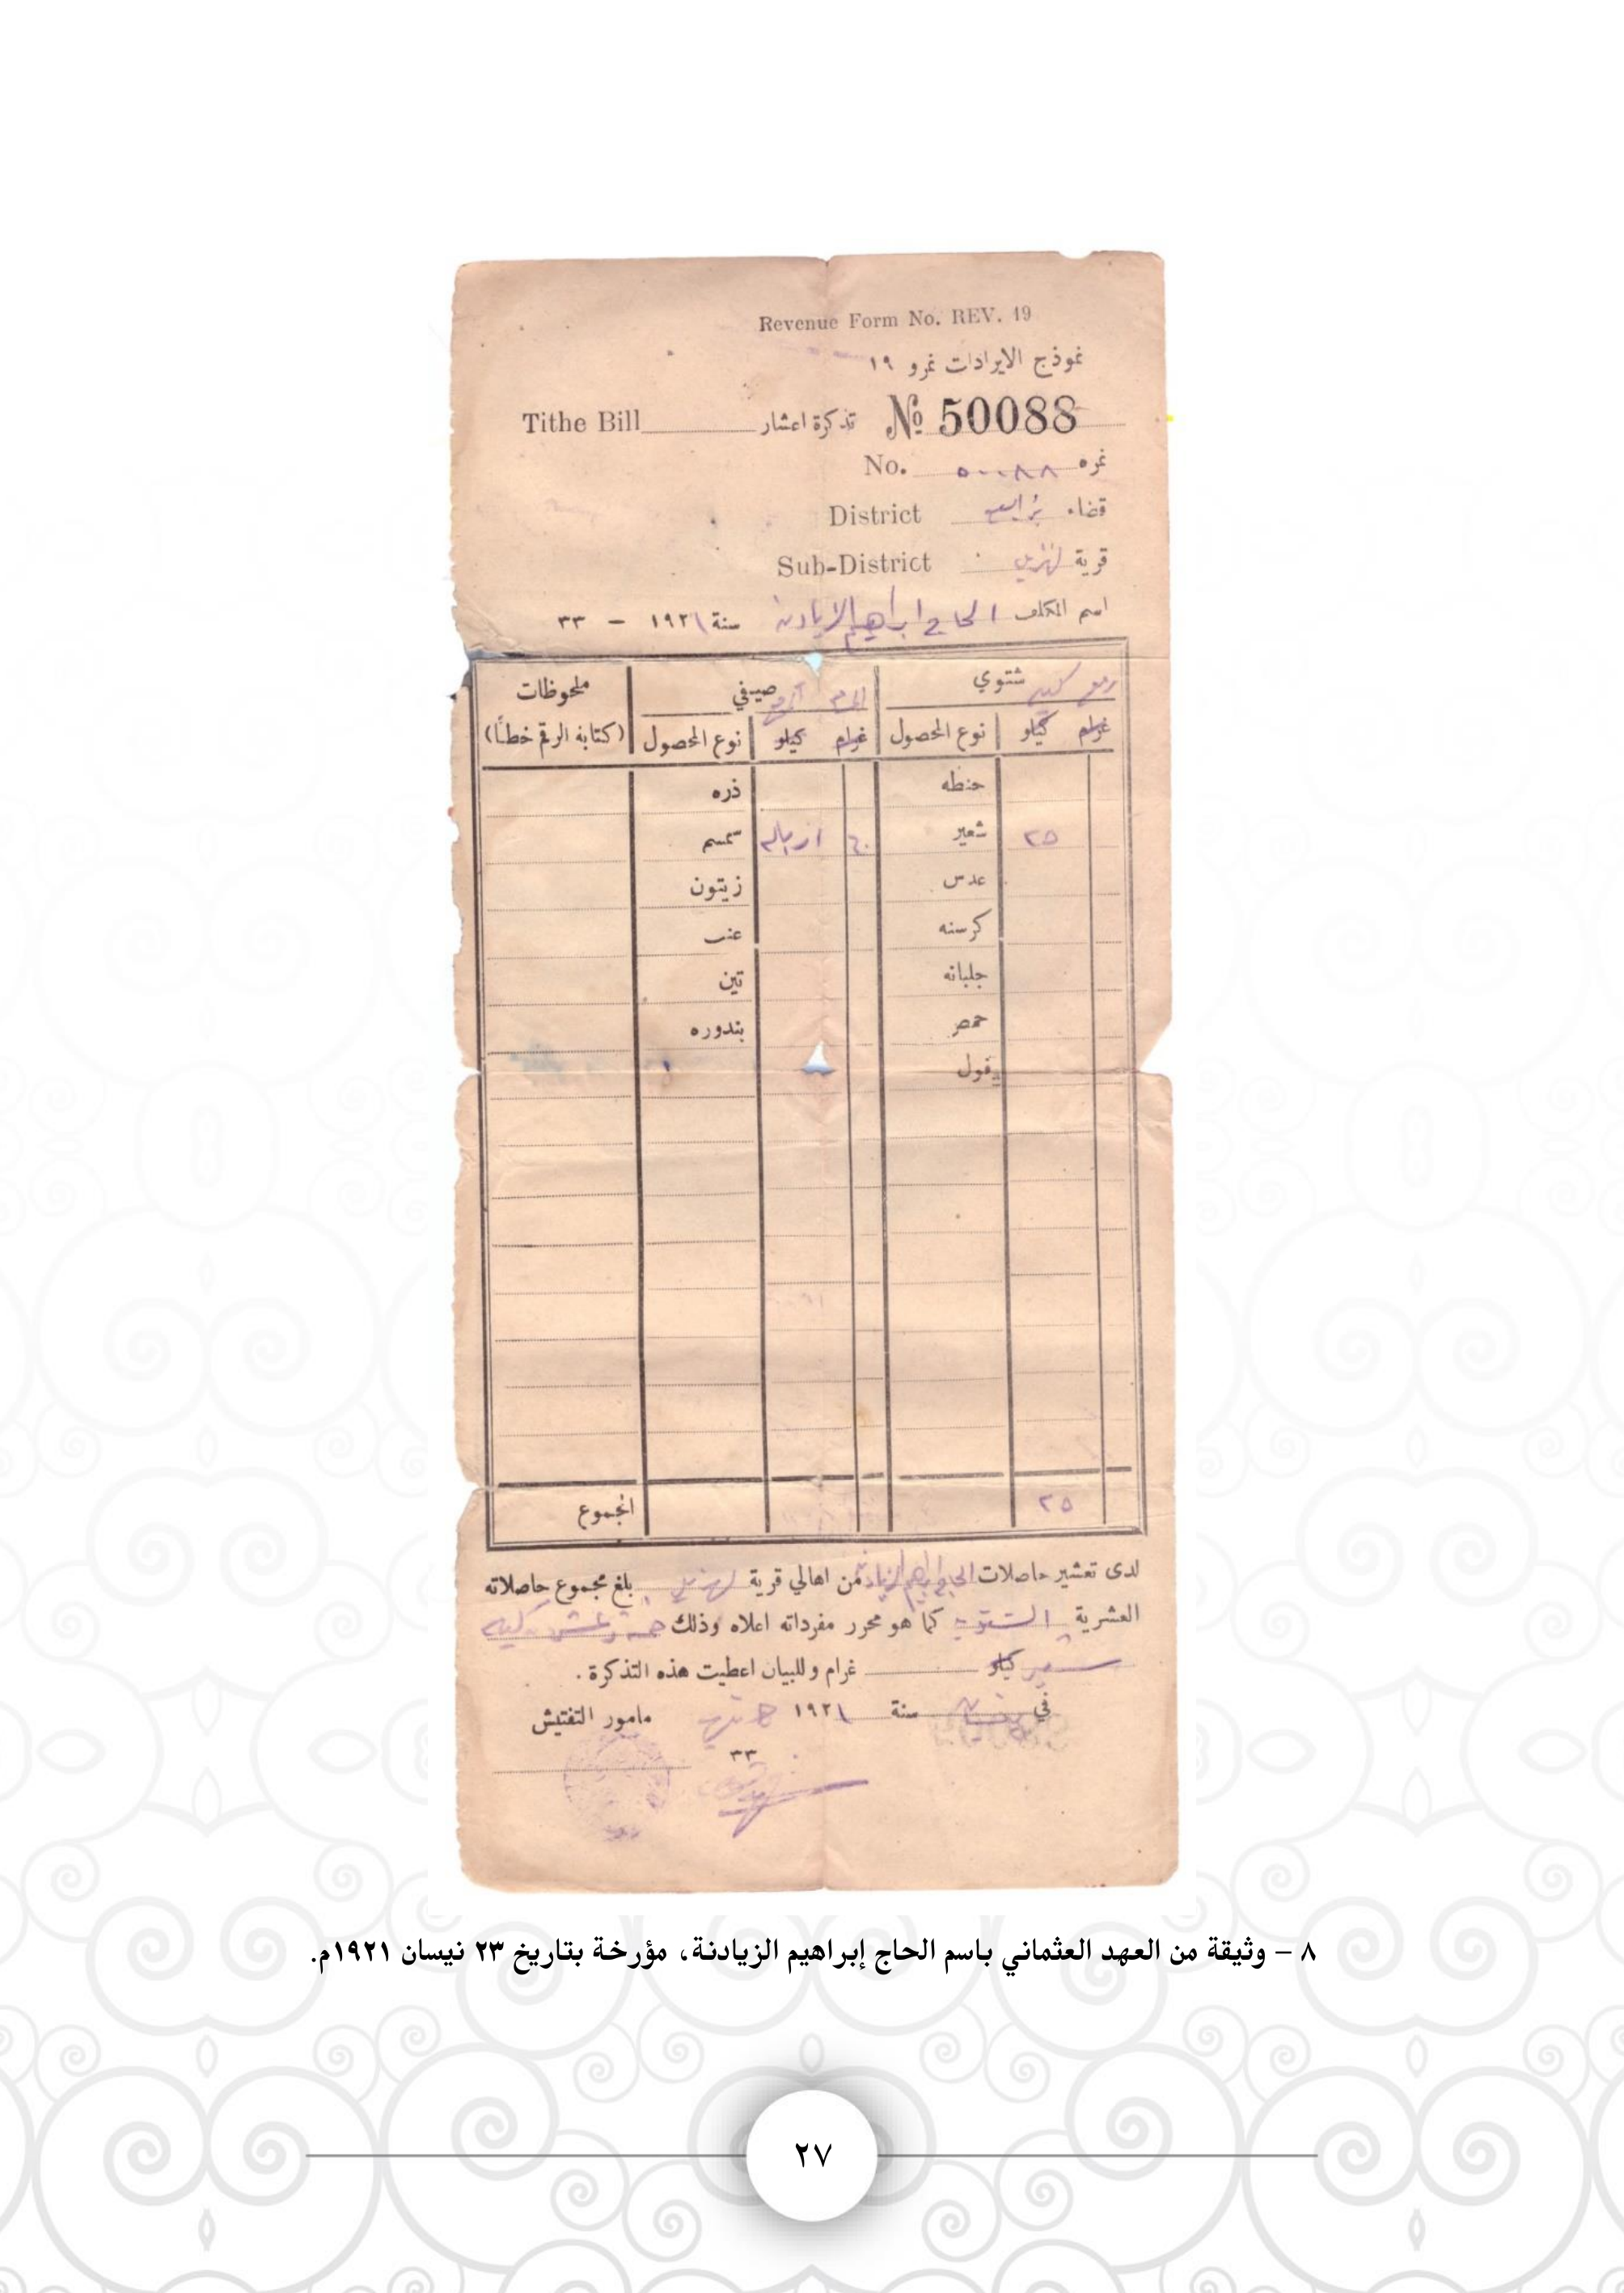 Revenue Form No. REV. 19
نموذج الايرادات نمرو ١٩
Tithe Bill تذكرة اعشار № 50088
No. ٥٠٠٨٨ نمره
District قضاء
Sub-District قرية
اسم المكلف الحاج ابراهيم الزيادنه سنة ١٩٢١ – ٣٣
شتوي صيفي ملحوظات
غرام كيلو نوع المحصول غرام كيلو نوع المحصول (كتابة الرقم خطاً)
حنطه ذره
٢٥ شعير سمسم
عدس زيتون
كرسنه عنب
جلبانه تين
حمص بندوره
فول
٢٥ المجموع
لدى تعشير حاصلات الحاج ابراهيم الزيادنه من اهالي قرية بلغ مجموع حاصلاته
العشرية الشتويه كما هو محرر مفرداته اعلاه وذلك خمسة وعشرين كيله
شعير كيلو غرام وللبيان اعطيت هذه التذكرة .
في سنة ١٩٢١ مامور التفتيش
٣٣
٨ – وثيقة من العهد العثماني باسم الحاج إبراهيم الزيادنة، مؤرخة بتاريخ ٢٣ نيسان ١٩٢١م.
٢٧